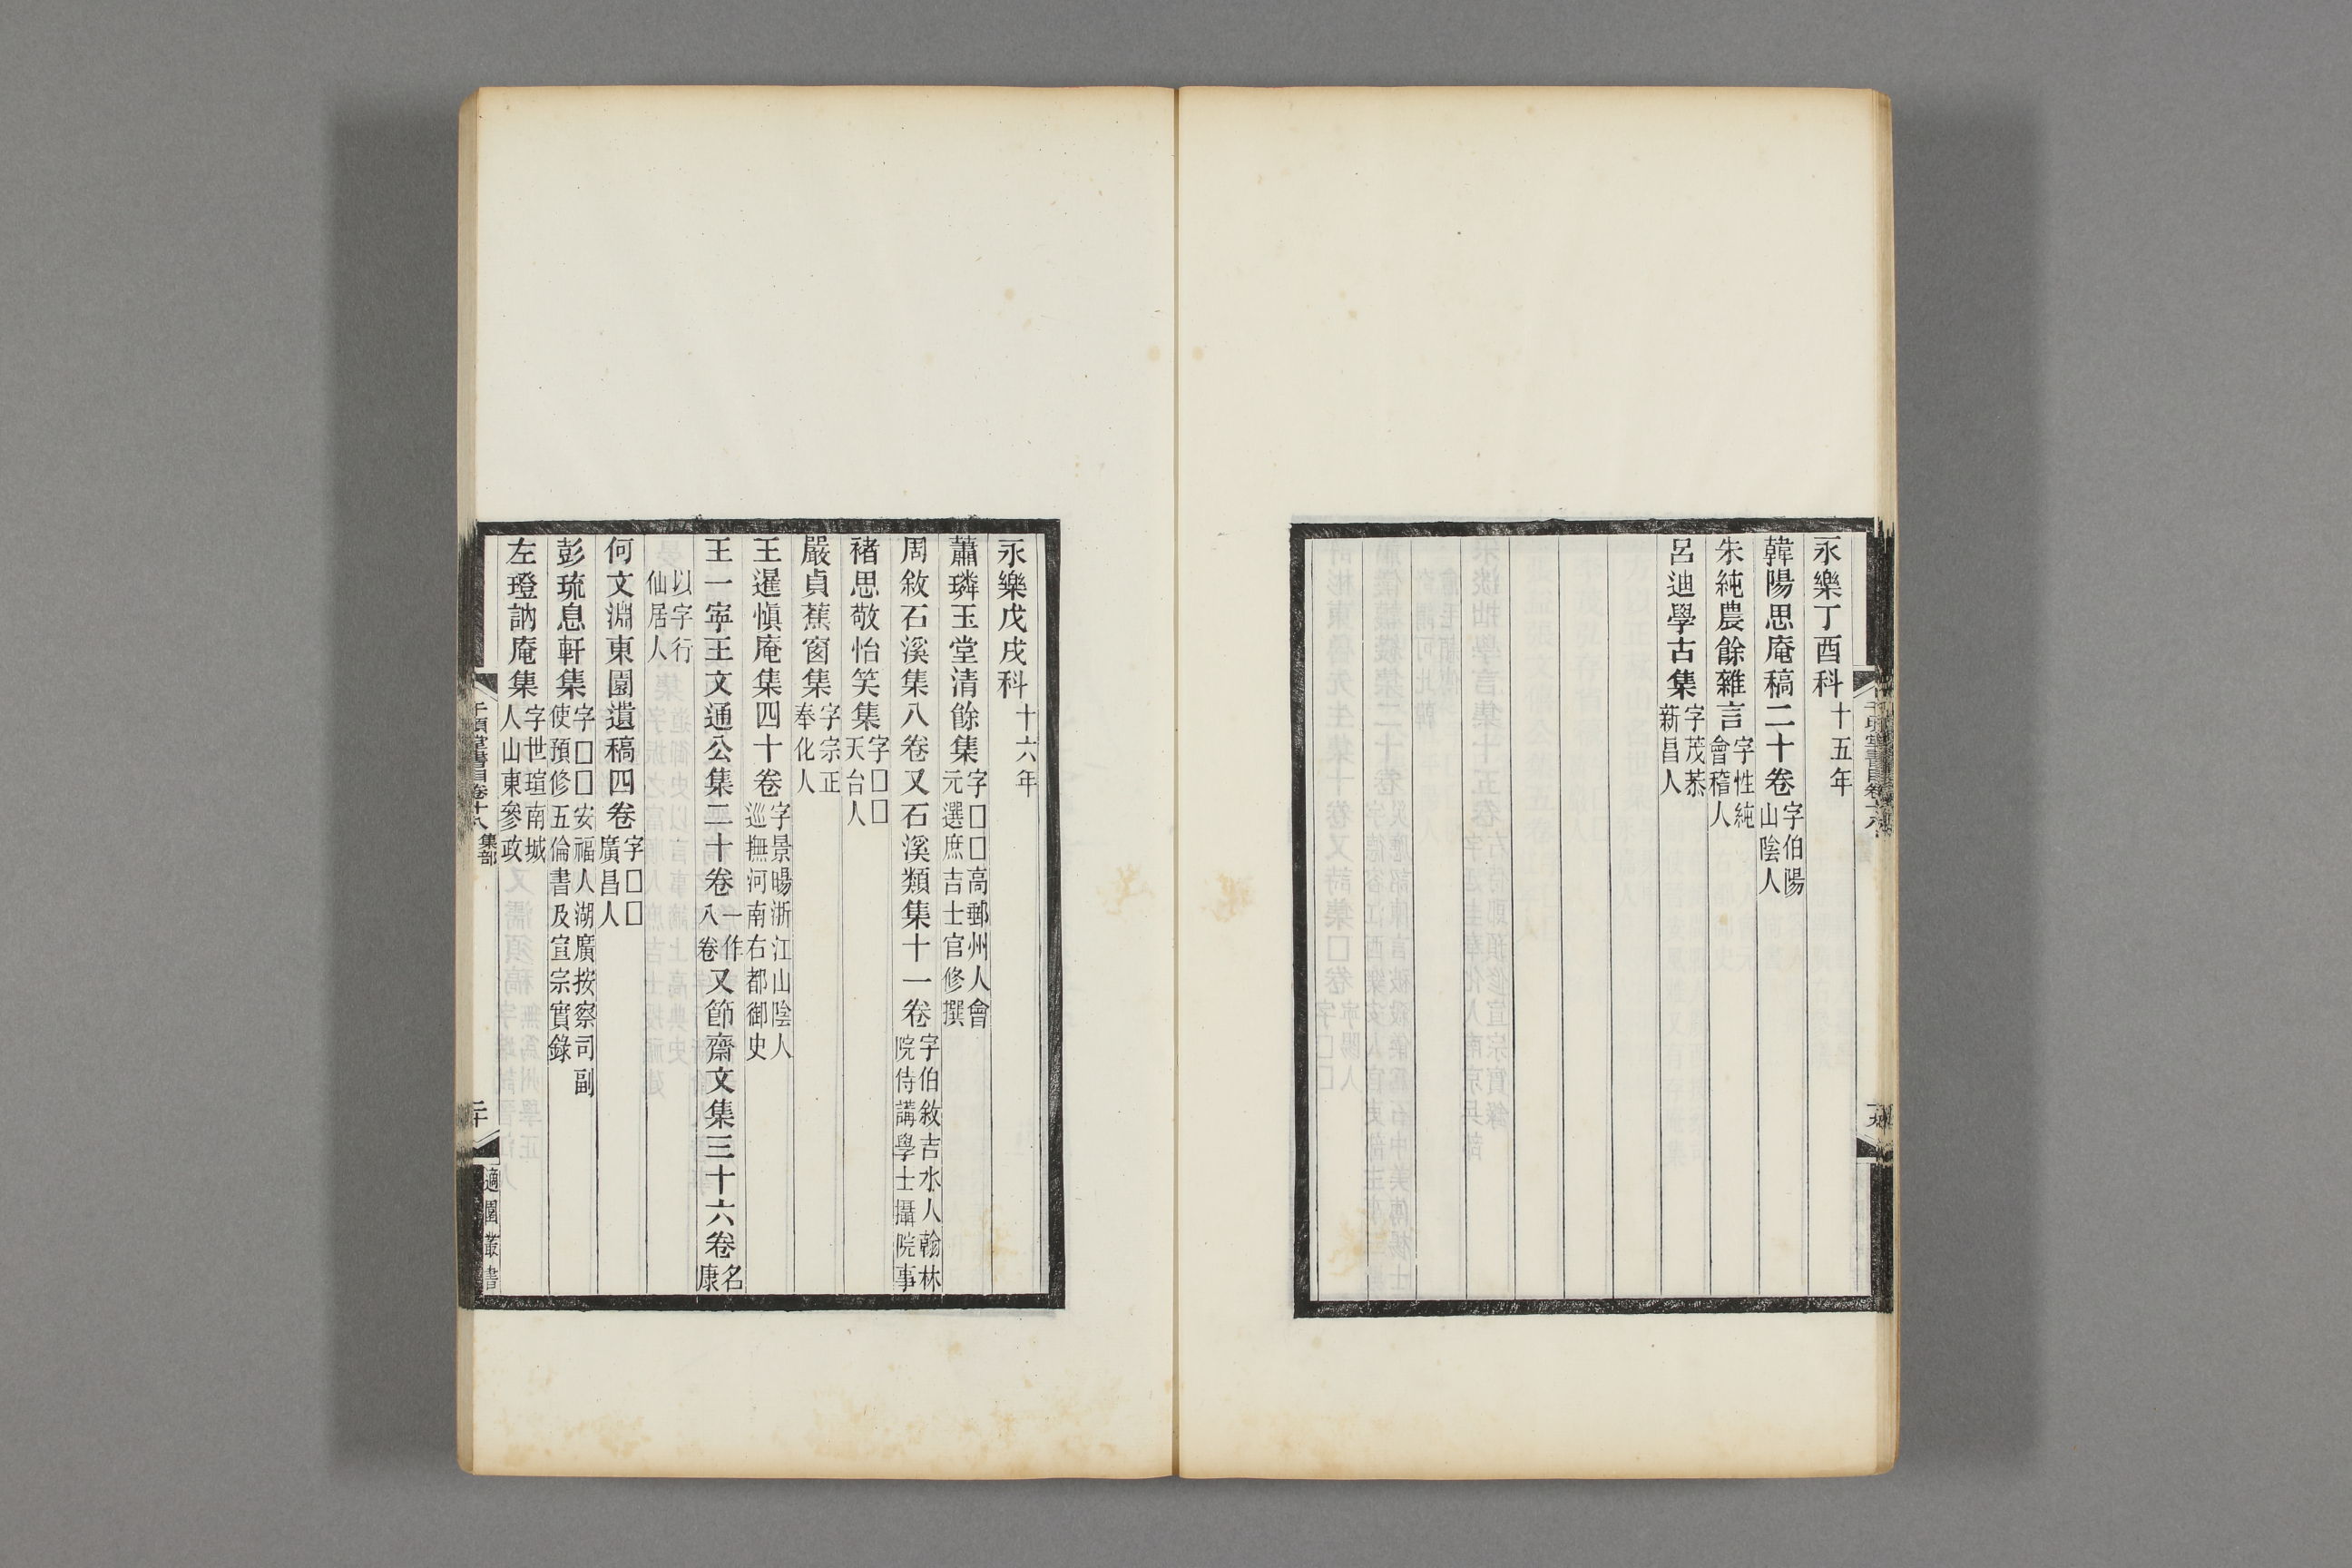 永樂丁酉科十五年
韓陽思庵稿二十卷字伯陽山陰人
朱純農餘雜言字性純會稽人
呂迪學古集字茂恭新昌人
永樂戊戌科十六年
蕭璘玉堂清餘集字□□高郵州人會元選庶吉士官修撰
周敘石溪集八卷又石溪類集十一卷字伯敘吉水人翰林院侍講學士攝院事
褚思敬怡笑集字□□天台人
嚴貞蕉窗集字宗正奉化人
王暹愼庵集四十卷字景暘浙江山陰人巡撫河南右都御史
王一寧王文通公集二十卷一作八卷又節齋文集三十六卷名康
以字行仙居人
何文淵東園遺稿四卷字□□廣昌人
彭琉息軒集字□□安福人湖廣按察司副使預修五倫書及宣宗實錄
左瑺訥庵集字世瑄南城人山東參政
千頃堂書目卷十八 集部
二十
適園叢書